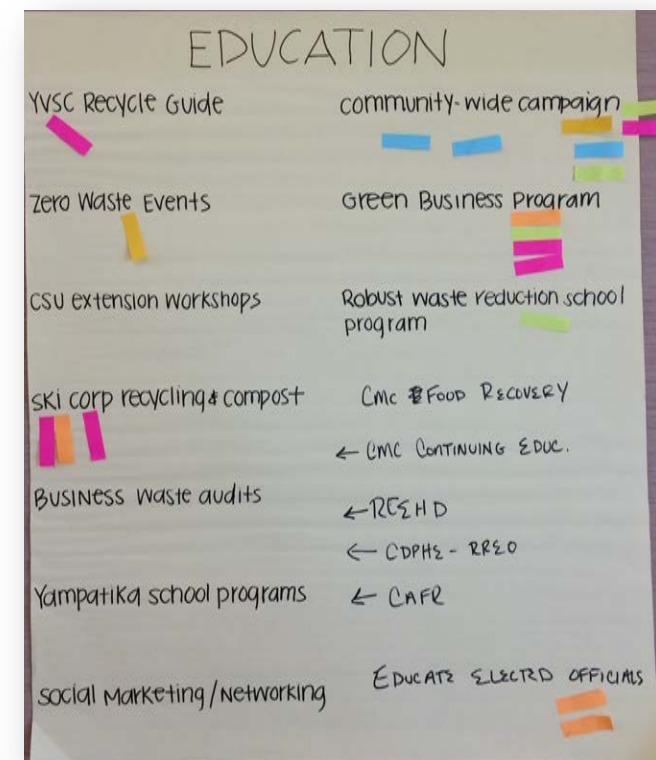 EDUCATION
YVSC Recycle Guide
Zero Waste Events
CSU extension workshops
Ski corp recycling & compost
Business waste audits
Yampatika school programs
Social Marketing/Networking
community-wide campaign
Green Business Program
Robust waste reduction school
program
CMC FOOD RECOVERY
← CMC CONTINUING EDUC.
← RCEHD
← CDPHE - RREO
← CAFR
EDUCATE ELECTED OFFICIALS